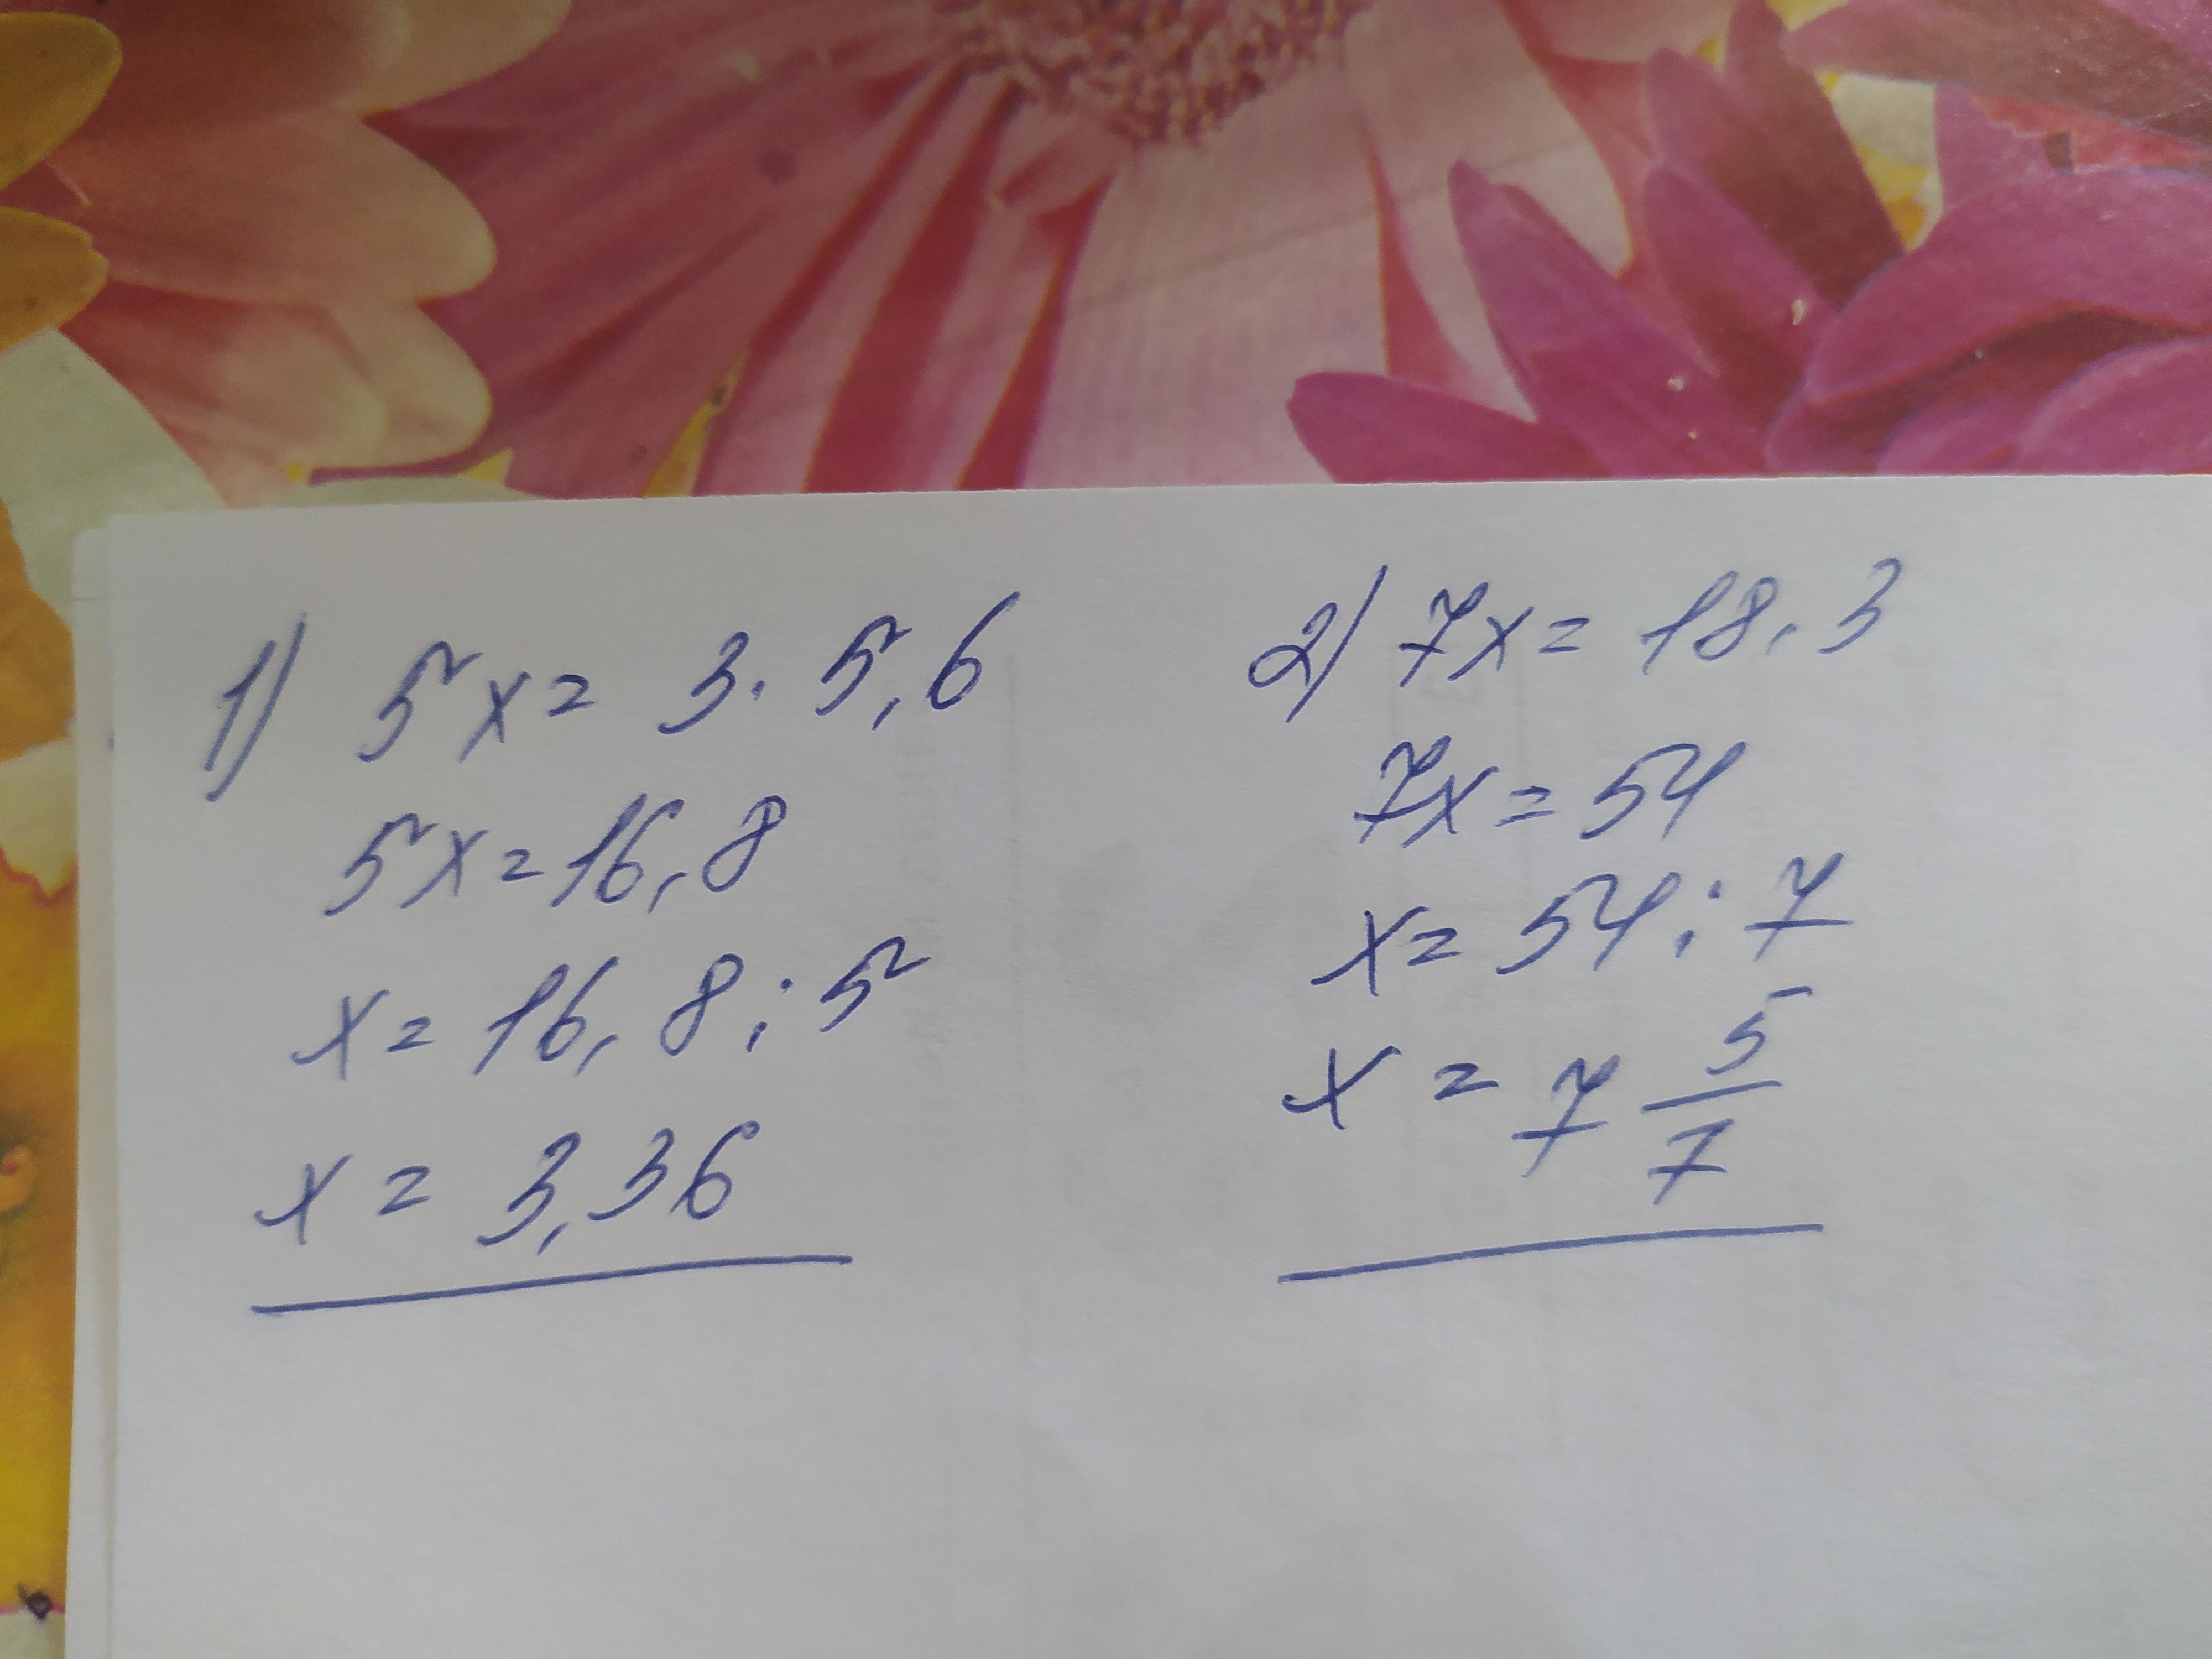 1) 5x = 3 · 5,6
5x = 16,8
x = 16,8 : 5
x = 3,36
2) 7x = 18 · 3
7x = 54
x = 54 : 7
x = 7 5/7